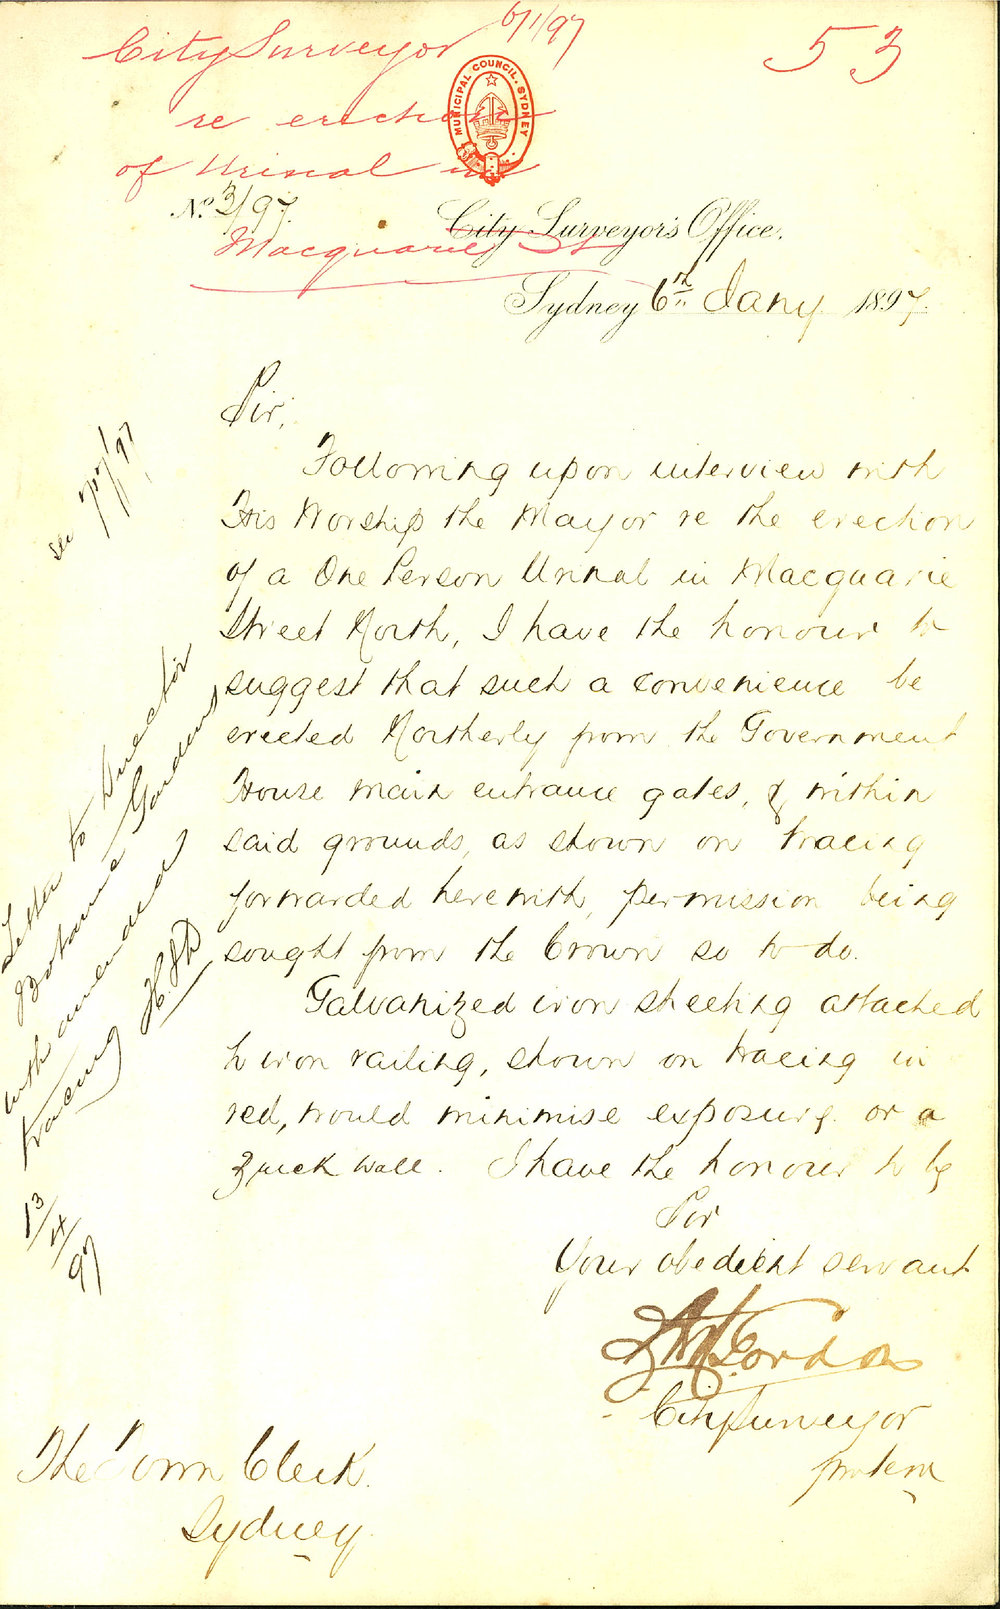 City Surveyor 6/1/97
53
re erection
of Urinal in
Macquarie St
MUNICIPAL COUNCIL. SYDNEY
No. 3/97
City Surveyor's Office.
Sydney 6th Jany 1897.
Sir,
Following upon interview with
His Worship the Mayor re the erection
of a One Person Urinal in Macquarie
Street North, I have the honour to
suggest that such a convenience be
erected Northerly from the Government
House main entrance gates, & within
said grounds, as shown on tracing
forwarded herewith, permission being
sought from the Crown so to do.
Galvanized iron sheeting attached
to iron railing, shown on tracing in
red, would minimise exposure or a
Brick wall. I have the honour to be
Sir
Your obedient servant
Gordon
City Surveyor
protem
The Town Clerk.
Sydney.
see 97
Letter to Director
Botanic Gardens
with amended
tracing
13/4/97